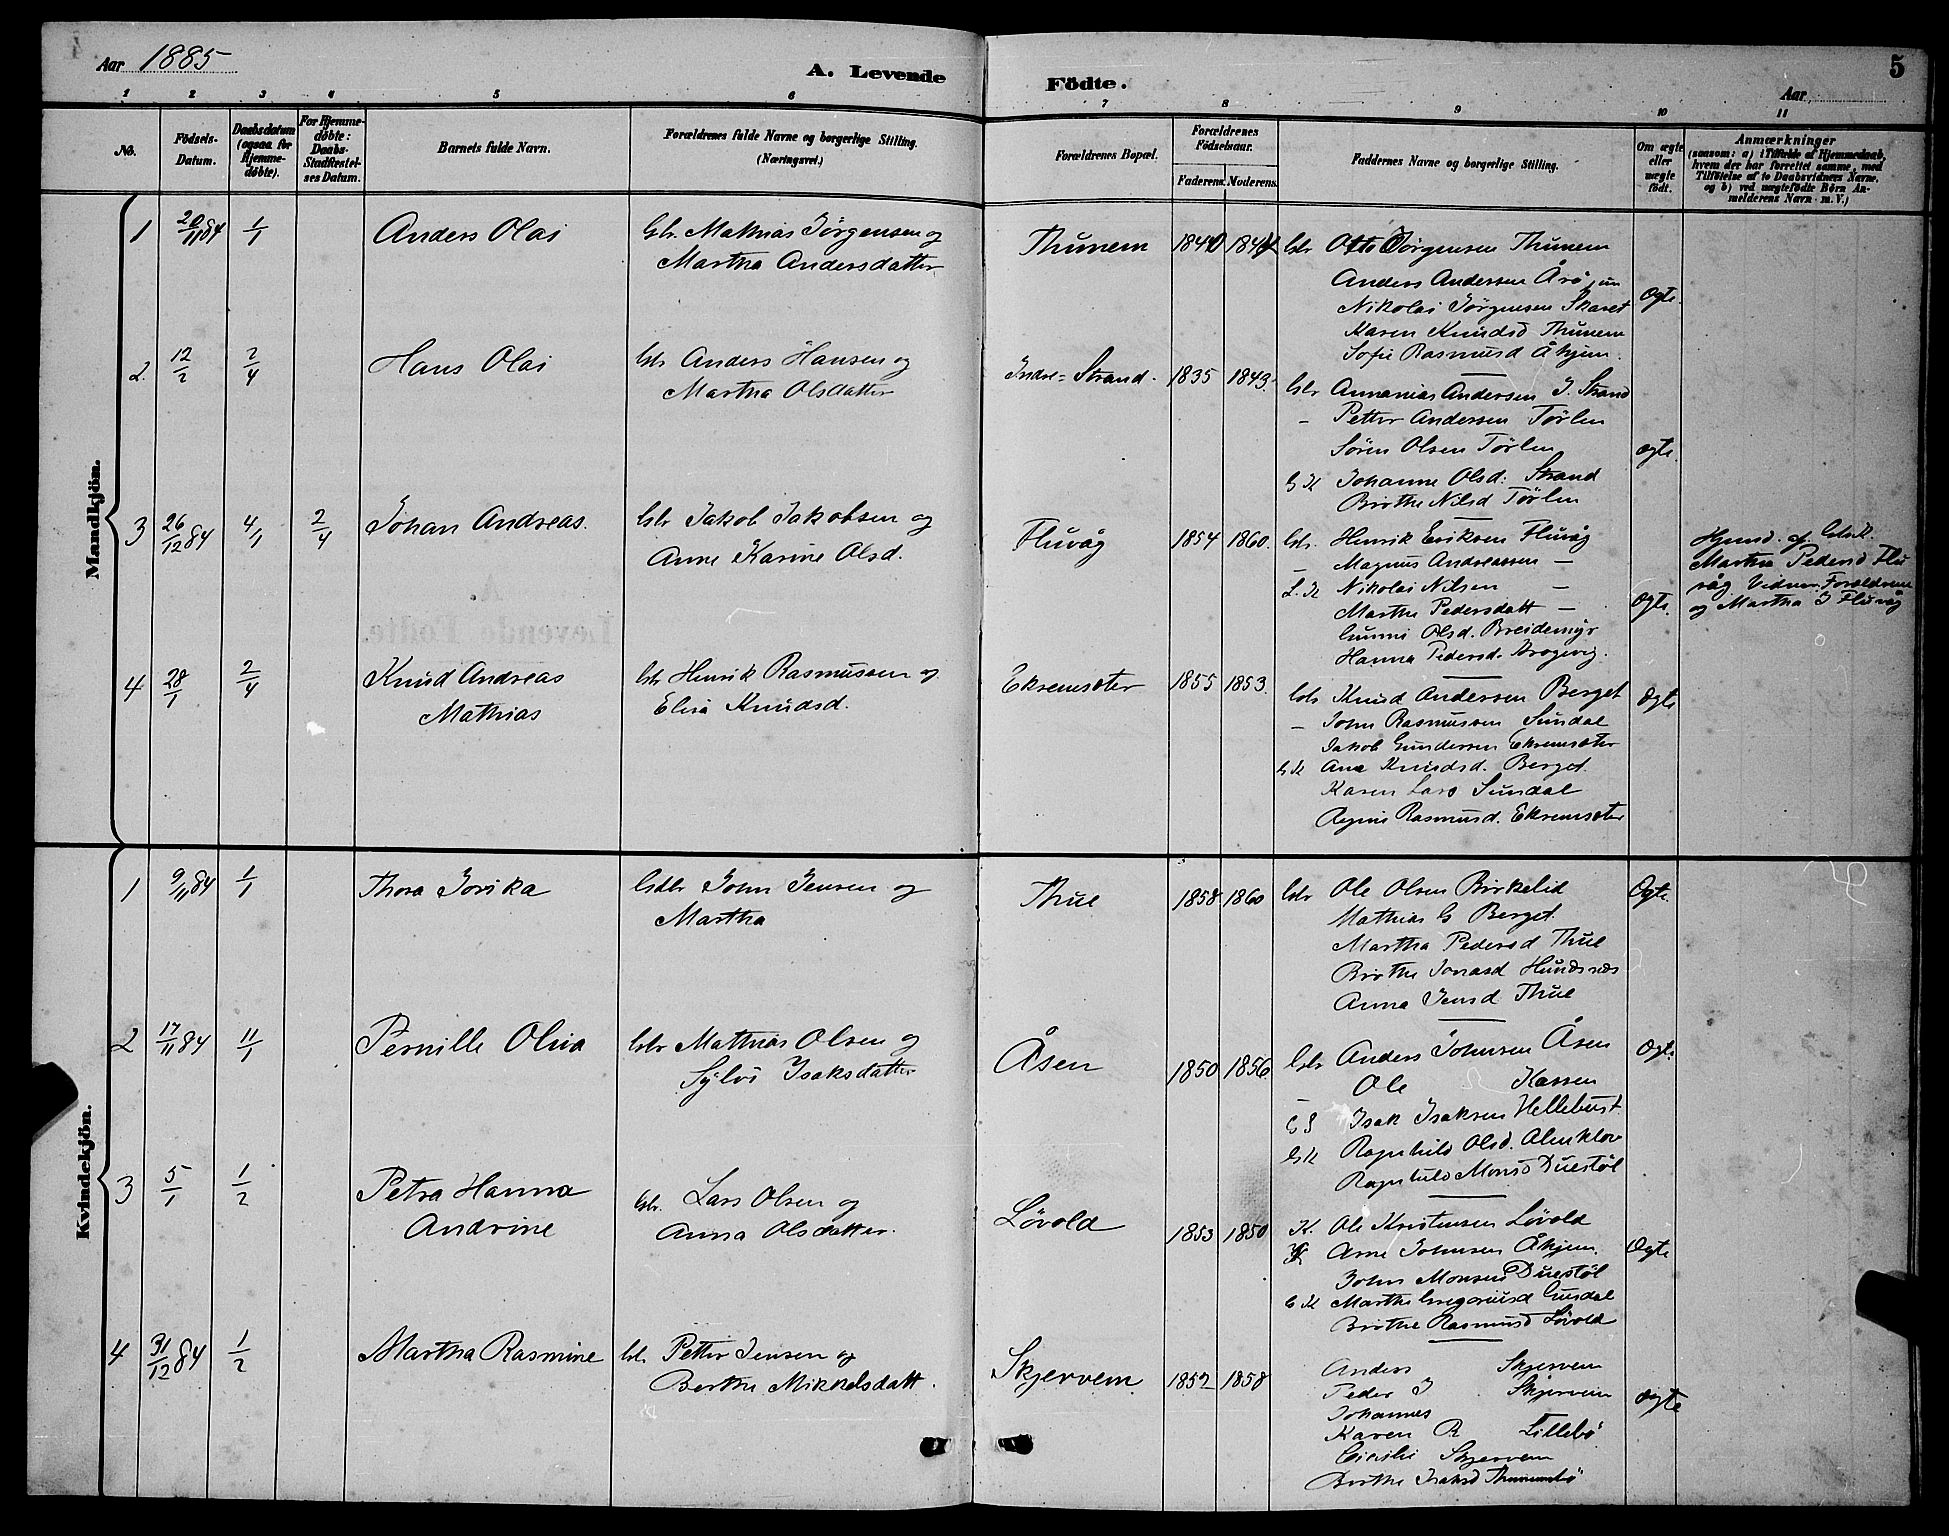 Aar 1885
A. Levende
Födte.
5
Aar
1 2 3 4 5 6 7 8 9 10 11
No.
Födsels-
Datum.
Daabsdatum
(ogsaa for
Hjemme-
døbte).
For Hjemme-
døbte:
Daabs-
Stadfæstel-
ses Datum.
Barnets fulde Navn.
Forældrenes fulde Navne og borgerlige Stilling.
(Næringsvei.)
Forældrenes Bopæl.
Forældrenes
Födselsaar.
Faderens. Moderens.
Faddernes Navne og borgerlige Stilling.
Om ægte
eller
uægte
født.
Anmærkninger
(saasom: a) i Tilfælde af Hjemmedaab,
hvem der har forrettet samme, med
Tilföielse af to Daabsvidners Navne,
og b) ved uægtefödte Börn An-
melderens Navn m. V.)
Mandkjön.
1 20/11 84 1/1 Anders Olai
Gbr. Mathias Jørgensen og
Martha Andersdatter
Thunem 1840 1844
Gbr Otto Jørgensen Thunem
Anders Andersen Årø jun
Nikolai Jørgensen Skaret
Karen Knudsd Thunem
Sofie Rasmusd Åhjem.
Ægte.
2. 12/2 2/4 Hans Olai
Gbr Anders Hansen og
Martha Olsdatter
Indre=Strand. 1835 1843.
Gbr Annanias Andersen I. Strand
- Petter Andersen Tørlen
Søren Olsen Tørlen
G K Johanne Olsd: Strand
Birthe Nilsd Tørlen
ægte.
3 26/12 84 4/1 2/4 Johan Andreas.
Gbr Jakob Jakobsen og
Anne Karine Olsd.
Fluvåg 1854 1860.
Gbr. Henrik Eriksen Fluvåg
- Magnus Andreassen -
L. K Nikolai Nilsen -
Marthe Pedersdatt -
Gunni Olsd. Breidemyr
Hanna Pedersd.
Ægte.
Hjemd. af Gbrk.
Martha Pedersd Flu
våg Vidner. Forældrene
og Martha I Fluvåg
4 28/1 2/4 Knud Andreas
Mathias
Gbr Henrik Rasmussen og
Elisa Knudsd.
Ekremsæter 1855 1853.
Gbr Knud Andersen Berget
- John Rasmussen Sundal
Jakob Gundersen Ekremsæter
G K Ane Knudsd. Berget.
Karen Lars Sundal
Rasmusd. Ekremsæter
Ægte
Kvindekjön.
1 9/11 84 1/1 Thora Jovika
Gdbr John Jensen og
Martha
Thue 1858 1860
Gbr Ole Olsen Birkelid
Mathias G Berget.
Martha Pedersd Thue
Birthe Jonasd Hundsnes
Anna Jensd Thue
Ægte.
2 17/11 84 11/1 Pernille Olivia
Gbr Mathias Olsen og
Sylvi Isaksdatter
Åsen 1850 1856
Gbr Anders Johnsen Åsen
Ole Kassen
G S Isak Isaksen Hellebust.
GK Ragnhild Olsd. Almklov
Ragnhild Monsd Duestøl
Ægte
3 5/1 1/2 Petra Hanna
Andrine
Gbr. Lars Olsen og
Anna Olsdatter.
Løvold 1853 1850
K. Ole Kristensen Løvold
Arne Johnsen Åhjem.
John Monsen Duestøl
G K Marthe Gregoriusd Gusdal
Birthe Rasmusd Løvold
Ægte
4 31/12 84 1/2 Martha Rasmine
Gbr Petter Jensen og
Berthe Mikkelsdatt.
Skjervem 1852 1858
Anders Skjervem
Peder J Skjervem
Johannes
Karen R Lillebø
Skjervem
Berthe Isaksd Thunembø
ægte